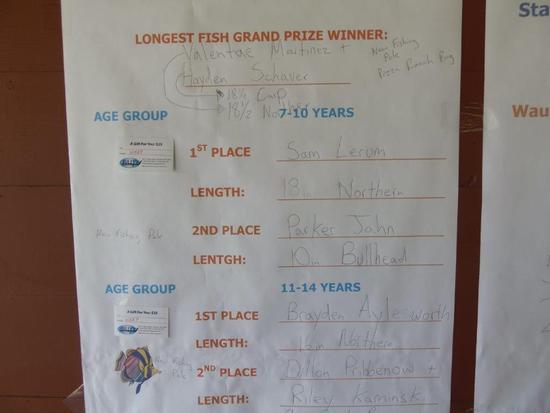 LONGEST FISH GRAND PRIZE WINNER:
Valentine Martinez +
Hayden Schaver
New Fishing
Pole
Pizza Ranch
18½ Carp
18½ Northern
AGE GROUP 7-10 YEARS
A Gift For You: $25
1ST PLACE Sam Lerum
LENGTH: 18in Northern
New Fishing Pole
2ND PLACE Parker Jahn
LENTGH: 10in Bullhead
AGE GROUP 11-14 YEARS
A Gift For You: $25
1ST PLACE Brayden Aylesworth
LENGTH: Northern
New Fishing
Pole
2ND PLACE Dillon Pribbenow +
LENGTH: Riley Kaminski
Sta
Wau